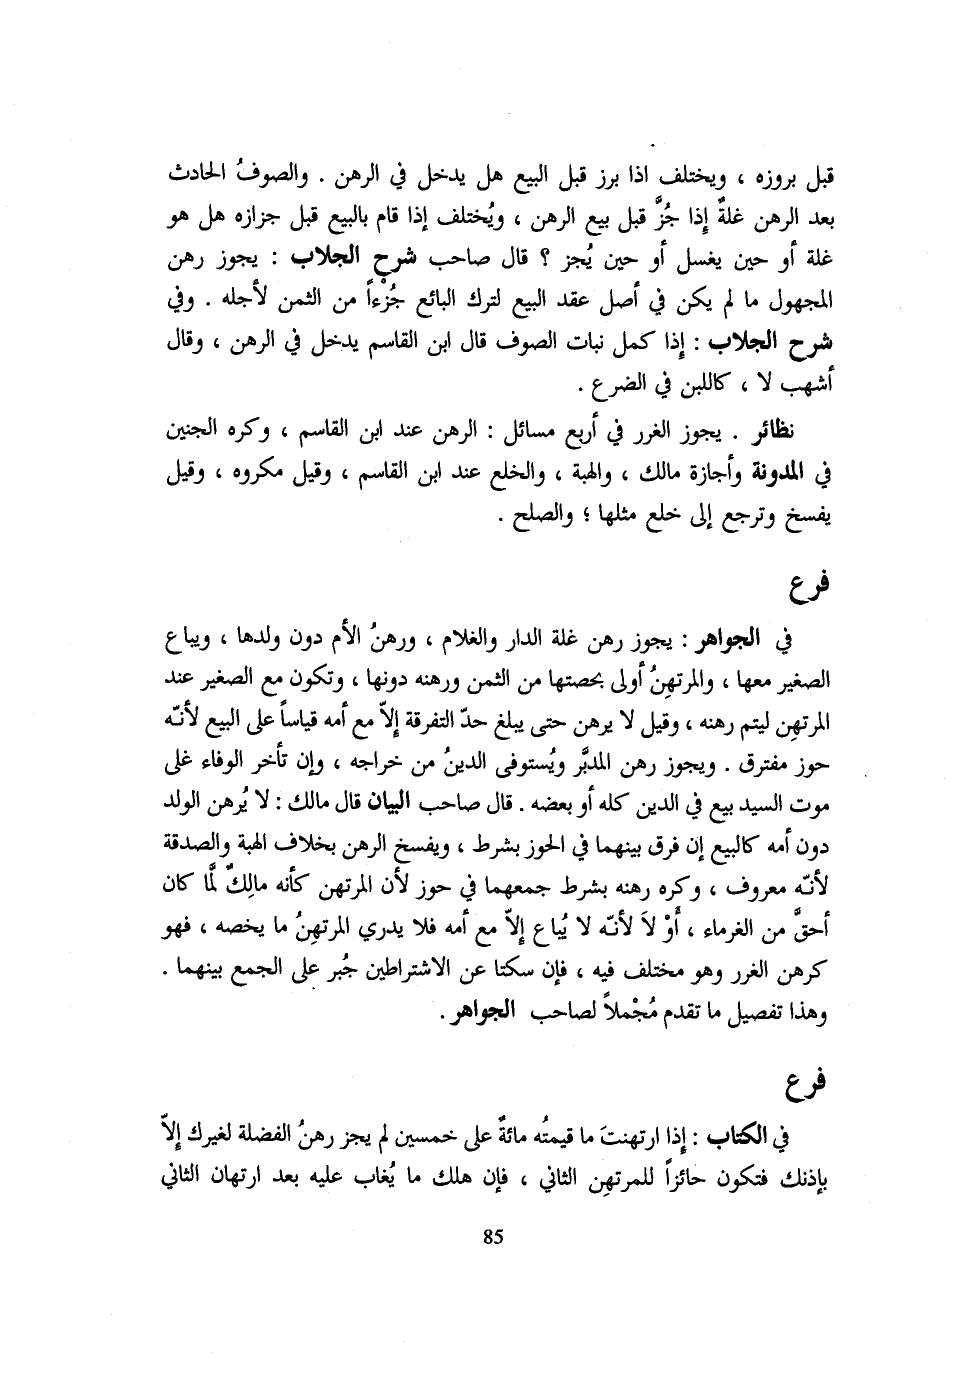 قبل بروزه ، ويختلف اذا برز قبل البيع هل يدخل في الرهن . والصوفُ الحادث
بعد الرهن غلةٌ إذا جُزَّ قبل بيع الرهن ، ويُختلف إذا قام بالبيع قبل جزازه هل هو
غلة أو حين يغسل أو حين يُجز ؟ قال صاحب شرح الجلاب : يجوز رهن
المجهول ما لم يكن في أصل عقد البيع لترك البائع جُزْءاً من الثمن لأجله . وفي
شرح الجلاب : إذا كمل نبات الصوف قال ابن القاسم يدخل في الرهن ، وقال
أشهب لا ، كاللبن في الضرع .
نظائر . يجوز الغرر في أربع مسائل : الرهن عند ابن القاسم ، وكره الجنين
في المدونة وأجازة مالك ، والهبة ، والخلع عند ابن القاسم ، وقيل مكروه ، وقيل
يفسخ وترجع إلى خلع مثلها ؛ والصلح .
فرع
في الجواهر : يجوز رهن غلة الدار والغلام ، ورهنُ الأم دون ولدها ، ويباع
الصغير معها ، والمرتهِنُ أولى بحصتها من الثمن ورهنه دونها ، وتكون مع الصغير عند
المرتهِن ليتم رهنه ، وقيل لا يرهن حتى يبلغ حدّ التفرقة إلاّ مع أمه قياساً على البيع لأنّه
حوز مفترق . ويجوز رهن المدبَّر ويُستوفى الدينُ من خراجه ، وإن تأخر الوفاء غلى
موت السيد بيع في الدين كله أو بعضه . قال صاحب البيان قال مالك : لا يُرهن الولد
دون أمه كالبيع إن فرق بينهما في الحوز بشرط ، ويفسخ الرهن بخلاف الهبة والصدقة
لأنّه معروف ، وكره رهنه بشرط جمعهما في حوز لأن المرتهن كأنه مالِكٌ لَّا كان
أحقَّ من الغرماء ، أَوْ لاَ لأنّه لا يُباع إلاّ مع أمه فلا يدري المرتهِنُ ما يخصه ، فهو
كرهن الغرر وهو مختلف فيه ، فإن سكتا عن الاشتراطين جُبر على الجمع بينهما .
وهذا تفصيل ما تقدم مُجْملاً لصاحب الجواهر .
فرع
في الكتاب : إذا ارتهنتَ ما قيمتُه مائةٌ على خمسين لم يجز رهنُ الفضلة لغيرك إلاّ
بإذنك فتكون حائزاً للمرتهِن الثاني ، فإن هلك ما يُغاب عليه بعد ارتهان الثاني
85